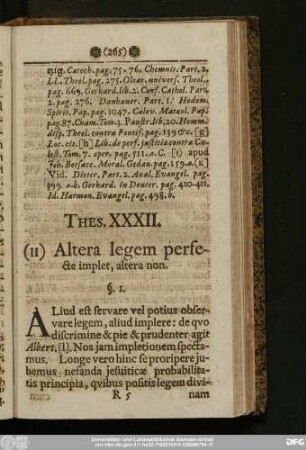 (265)
Catech. pag. 75-76. Chemnit. Part. 2.
LL. Theol. pag. 275. Olear. univers. Theol.
pag. 669. Gerhard. lib. 2. Conf. Cathol. Part.
2. pag. 276. Danhauer. Part. 1. Hodom.
Spirit. Pap. pag. 1047. Calov. Mataol. Pap.
pag. 87. Cham. Tom. 3. Panstr. lib. 20. Homm.
disp. Theol. contra Pontif. pag. 139 &c. [g]
Loc. cit. [h] Lib. de perf. justitia contra Cæ-
lest. Tom. 7. oper. pag. 511. a. C. [i] apud
Joh. Botsacc. Moral. Gedan. pag. 159. a. (K)
Vid. Dieter. Part. 2. Anal. Evangel. pag.
399. a-b. Gerhard. in Deuter. pag. 410-411.
Id. Harmon. Evangel. pag. 498. b.
THES. XXXII.
(11) Altera legem perfe-
cte implet, altera non.
§. 1.
ALiud est servare vel potius obser-
vare legem, aliud implere: de qvo
discrimine & pie & prudenter agit
Albers. [l]. Nos jam impletionem specta-
mus. Longe vero hinc se proripere ju-
bemus nefanda jesuiticæ probabilita-
tis principia, qvibus positis legem divi-
R 5 nam